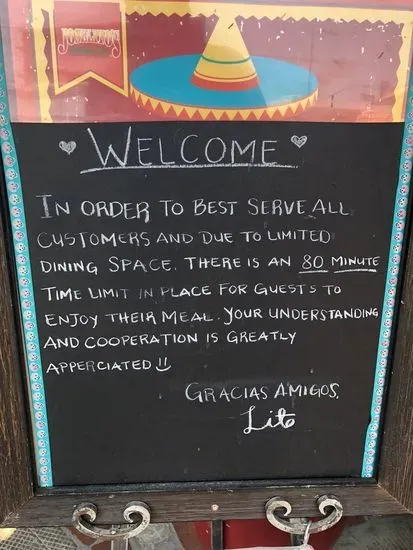 JOSELITO'S
WELCOME
IN ORDER TO BEST SERVE ALL
CUSTOMERS AND DUE TO LIMITED
DINING SPACE. THERE IS AN 80 MINUTE
TIME LIMIT IN PLACE FOR GUESTS TO
ENJOY THEIR MEAL. YOUR UNDERSTANDING
AND COOPERATION IS GREATLY
APPERCIATED!!
GRACIAS AMIGOS,
Lito